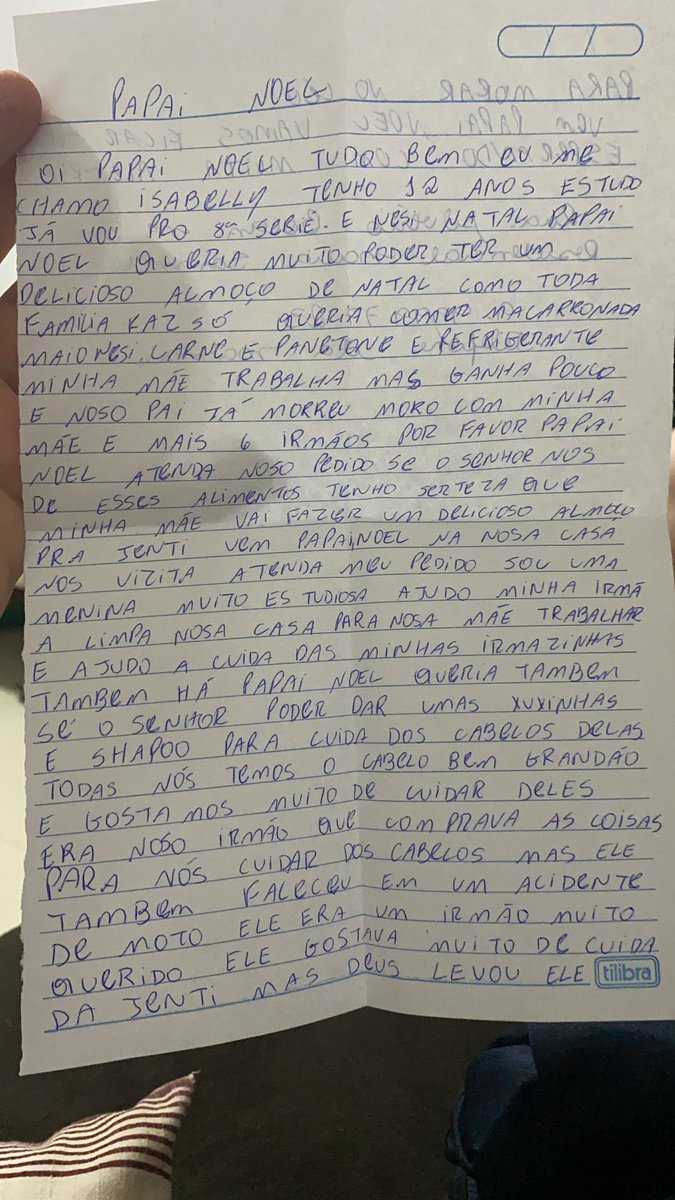 PAPAI NOEL
OI PAPAI NOEL TUDO BEM EU ME
CHAMO ISABELLY TENHO 12 ANOS ESTUDO
JÁ VOU PRO 8º SERIE. E NESI NATAL PAPAI
NOEL QUERIA MUITO PODER TER UM
DELICIOSO ALMOÇO DE NATAL COMO TODA
FAMILIA KAZ SÓ QUERIA COMER MACARRONADA
MAIONESI. CARNE E PANETONE E REFRIGERANTE
MINHA MÃE TRABALHA MAS GANHA POUCO
E NOSO PAI JÁ MORREU MORO COM MINHA
MÃE E MAIS 6 IRMÃOS POR FAVOR PAPAI
NOEL ATENDA NOSO PEDIDO SE O SENHOR NOS
DE ESSES ALIMENTOS TENHO SERTEZA QUE
MINHA MÃE VAI FAZER UM DELICIOSO ALMOÇO
PRA JENTI VEM PAPAI NOEL NA NOSA CASA
NOS VIZITA ATENDA MEU PEDIDO SOU UMA
MENINA MUITO ESTUDIOSA AJUDO MINHA IRMÃ
A LIMPA NOSA CASA PARA NOSA MÃE TRABALHAR
E AJUDO A CUIDA DAS MINHAS IRMAZINHAS
TAMBEM HÁ PAPAI NOEL QUERIA TAMBEM
SÉ O SENHOR PODER DAR UMAS XUXINHAS
E SHAPOO PARA CUIDA DOS CABELOS DELAS
TODAS NÓS TEMOS O CABELO BEM GRANDÃO
E GOSTAMOS MUITO DE CUIDAR DELES
ERA NOSO IRMÃO QUE COMPRAVA AS COISAS
PARA NÓS CUIDAR DOS CABELOS MAS ELE
TAMBEM FALECEU EM UM ACIDENTE
DE MOTO ELE ERA UM IRMÃO MUITO
QUERIDO ELE GOSTAVA MUITO DE CUIDA
DA JENTI MAS DEUS LEVOU ELE
tilibra